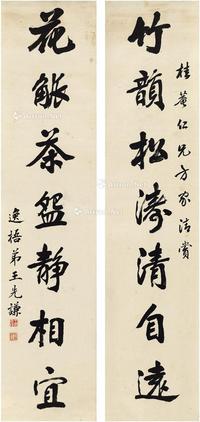 桂菴仁兄方家清賞
竹韻松濤清自遠
花觴茶盌靜相宜
逸梧弟王先謙